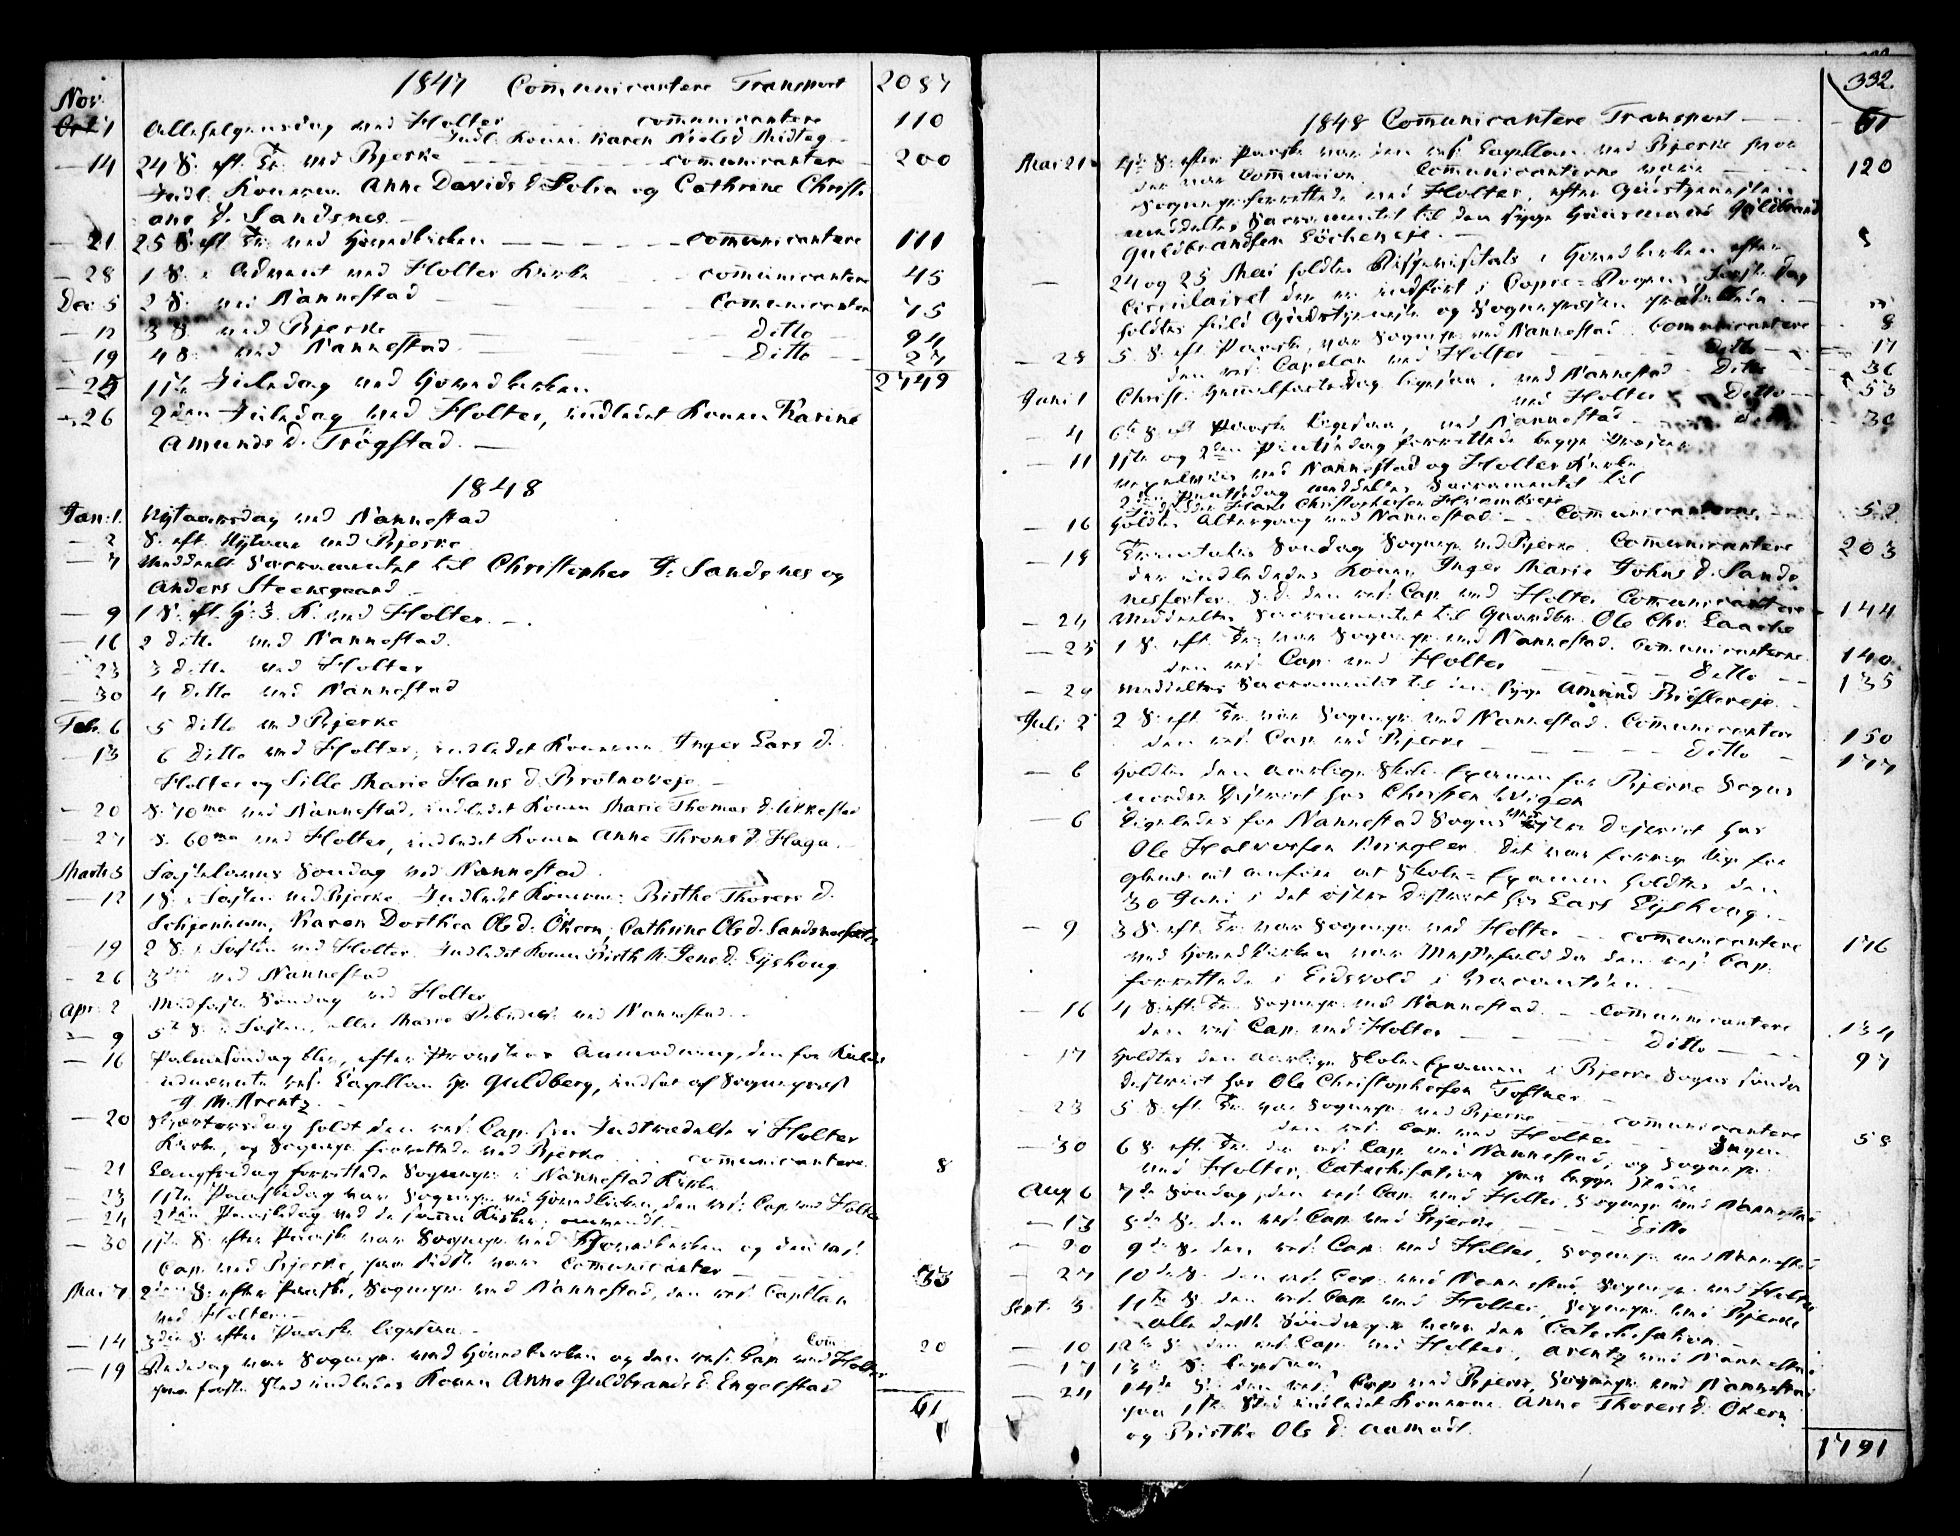 1847 Com̄unicantere Transport 2087
Nov.
Oct 1 Allehelgensdag ved Holter com̄unicantere 110
Indl. Konen Karen Niels d Midteg
— 14 24 S. eft. Tr. ved Bjerke com̄unicantere 200
Indl. Konerne Anne Davids d. Solia og Cathrine Christi-
ane d. Sandsnes. —
— 21 25 S. eft. Tr. ved Hovedkirken — com̄unicantere 111
— 28 1 S. i Advent ved Holter Kirke com̄unicantere 45
Dec. 5 2 S. ved Nannestad — Com̄unicanter 75
— 12 3 S. ved Bjerke — Ditto — 94
— 19 4 S. ved Nannestad — Ditto — 27
— 25 1ste Juledag ved Hovedkirken 2749
— 26 2den Juledag ved Holter, indledet Konen Karine
Amunds d. Trögstad. —
1848
Jan. 1. Nytaarsdag ved Nannestad
— 2 S. eft. Nytaar ved Bjerke
— 7 Meddeelt Sacramentet til Christopher J. Sandsnes og
Anders Steensgaard —
— 9 1 S. eft. H. 3 K. ved Holter. —
— 16 2 ditto ved Nannestad.
— 23 3 ditto ved Holter
— 30 4 ditto ved Nannestad
Feb. 6 5 ditto ved Bjerke
— 13 6 Ditto ved Holter, indledet Konerne Inger Lars d.
Holter og Sille Marie Hans d. Brotnoveje —
— 20 S. 70ma ved Nannestad, indledet Konen Marie Thomas d. Ukkestad
— 27 S. 60ma ved Holter, indledet Konen Anne Throns d. Haga. —
Marts 5 Fastelavns Søndag ved Nannestad.
— 12 1 S. i Fasten ved Bjerke. Indledet Konerne: Birthe Thorers d.
Karen Dorthea Ols d. Ökern, Cathrine Ols d.
19 2 S. i Fasten ved Holter. Indledet Konen Birth M. Jens d. Eyshoug
— 26 3die ved Nannestad
Apr. 2 Midfaste Søndag ved Holter
— 9 5te S. i Fasten, eller Mariæ ved Nannestad. —
— 16 Palmesøndag blev, efter Provstens Anmodning, den for
res. Capellan Hr. Guldberg, indsat af Sognepræst
J. M. Arentz. —
— 20 Skjærtorsdag holdt den res. Cap. sin Indtrædelse i Holter
Kirke, og Sognepr. forrettede ved Bjerke com̄unicantere. 8
— 21 Langfredag forrettede Sognepr. i Nannestad Kirke
— 23 1ste Paaskedag var Sognepr. ved Hovedkirken, den res. Cap. ved Holter
— 24 2den Paaskedag ved de samme Kirker, omvendt. —
— 30 1ste S. efter Paaske var Sognepr. ved Hovedkirken og den res.
Cap. ved Bjerke, paa sidste var Com̄unicanter — 33
Mai 7 2den S. efter Paaske, Sognepr. ved Nannestad, den res. Capellan
ved Holter. —
— 14 3die S. efter Paaske ligesaa. — Com̄. 20
— 19 Bededag var Sognepr. ved Hovedkirken og den res. Cap. ved Holter
paa første Sted indledes Konen Anne Guldbrands d. Engelstad
61
332.
1848 Com̄unicantere Transport — 61
Mai 21 4de S. efter Paaske var den res. Capellan ved Bjerke hvor
der var Communion. Com̄unicanterne vare — 120
Sognepr. forrettede ved Holter, efter Gudstjenesten
meddeltes Sacramentet til den syge Huusmand Guldbrand
Guldbrandsen —
— 24 og 25 Mai holdtes Bispevisitats i Hovedkirken efter
Circulairet der er indført i Copie-Bogen, første Dag
holdtes fuld Gudstjeneste og Sognepræsten prædikede. —
— 28 5 S. eft. Paaske, var Sognepr. ved Nannestad. Com̄unicantere 8
den res. Capelan ved Holter — ditto 17
Juni 1 Christi Himmelfartsdag ligesaa, ved Nannestad. Ditto 36
ved Holter Ditto — 53
— 4 6te S. eft. Paaske ligesaa, ved Nannestad — 36
— 11 1ste og 2den Pintsedag forrettede begge Præster
vexelviis ved Nannestad og Holter Kirke
2den Pintsedag meddeltes Sacramentet til
Hans Christophersen
— 16 Holdtes Altergang ved Nannestad — Com̄unicanterne 52
— 18 Trinitatis Søndag Sognepr. ved Bjerke. Com̄unicantere 203
der indledes Konen Inger Marie Johns d. Sands-
S. d. den res. Cap. ved Holter Com̄unicantere 144
— 24 Meddeeltes Sacramentet til Gaardbr. Ole Chr. Laache
— 25 1 S. eft. Tr. var Sognepr. ved Nannestad. Com̄unicanterne. 140
den res. Cap. ved Holter — Ditto — 135
— Meddeeltes Sacramentet til den syge Amund
Juli 2 2 S. eft. Tr. var Sognepr. ved Nannestad. Com̄unicantere 150
den res. Cap. ved Bjerke — Ditto — 177
— 6 Holdtes den aarlige Skole-Examen for Bjerke Sogns
nordre District hos Christen
— 6 Ligeledes for Nannestad Sogns District hos
Ole Halvorsen Ringler. Det var forrige Uge for-
glemt at anføre at Skole-Examen holdtes den
30 Juni i det østre District hos Lars Eyshoug. —
— 9 3 S. eft. Tr. var Sognepr. ved Holter — com̄unicantere 176
ved Hovedkirken var Messefald da den res. Cap.
forrettede i Eidsvold i Vacantsen. —
— 16 4 S. eft. Tr. Sognepr. ved Nannestad. — Com̄unicantere 134
den res. Cap. ved Holter — Ditto — 97
— 17 Holdtes den aarlige Skole-Examen i Bjerke Sogns søndre
District hos Ole Christophersen Toftner —
— 23 5 S. eft. Tr. var Sognepr. ved Bjerke — com̄unicantere 58
den res. Cap. ved Holter — Ingen
— 30 6 S. eft. Tr. den res. Cap. ved Nannestad, og Sognepr.
ved Holter. Catechisation paa begge Steder
Aug. 6 7de Søndag, den res. Cap. ved Holter, Sognepr. ved Nannestad
— 13 8de S. den res. Cap. ved Bjerke — Ditto
— 20 9de S. den res. Cap. ved Holter, Sognepr. ved Nannestad
— 27 10de S. den res. Cap. ved Nannestad, Sognepr. ved Holter
Sept. 3 11te S. den res. Cap. ved Holter, Sognepr. ved Bjerke
alle disse Søndage var der Catechisation —
— 10 12te S. den res. Cap. ved Holter, Arentz ved Nannestad
— 17 13de S. ligesaa
— 24 14de S. den res. Cap. ved Bjerke, Sognepr. ved Nannestad
paa 1ste Sted indledet Konerne Anne Thorers d. Økern
og Birthe Ols d. Aamodt.
1791